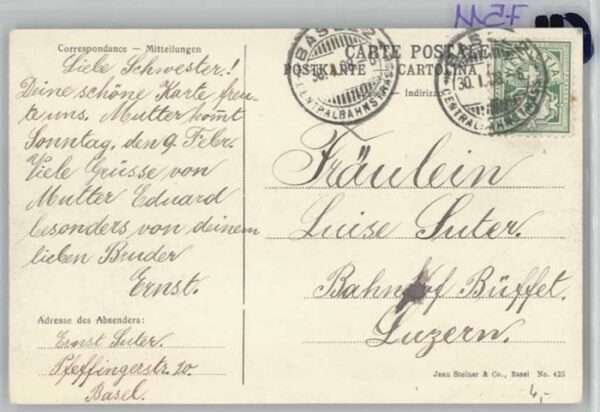 Correspondance — Mitteilungen
Liebe Schwester!
Deine schöne Karte freu-
te uns. Mutter kommt
Sonntag, den 9. Febr.
Viele Grüsse von
Mutter Eduard
besonders von deinem
lieben Bruder
Ernst.
Adresse des Absenders:
Ernst Suter.
Pfeffingerstr. 20.
Basel.
CARTE POSTALE
POSTKARTE CARTOLINA
Indirizzo
BASEL 2
30.I.08
CENTRALBAHNSTRASSE
30.I.08
CENTRALBAHNSTRASSE
Fräulein
Luise Suter.
Bahnhof Büffet.
Luzern.
Jean Steiner & Co., Basel No. 425
4,-